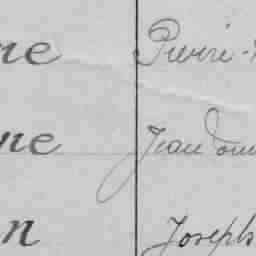 ne Pierre-
ne Jean Dom
n Joseph